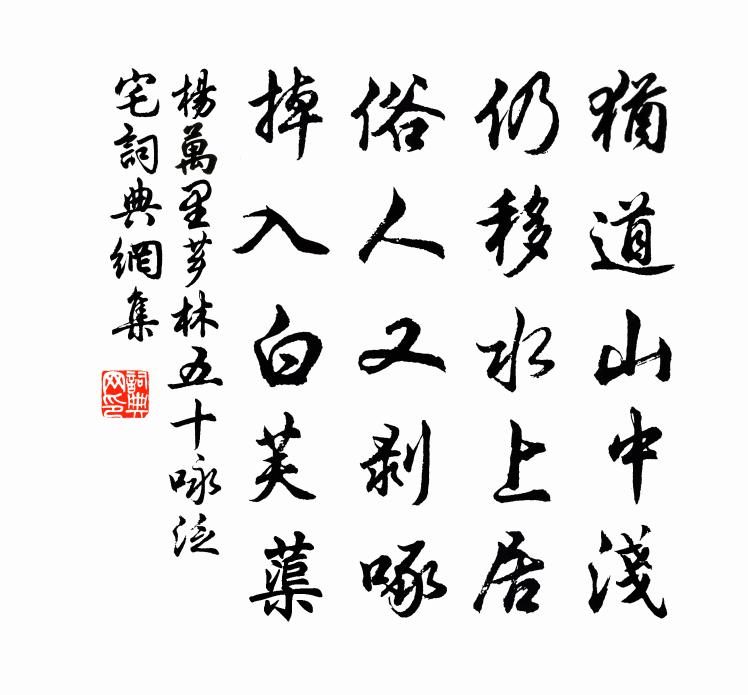 猶道山中淺
仍移水上居
俗人又剥啄
掉入白芙蕖
楊萬里芗林五十咏泛
宅詞典網集
詞典
网印